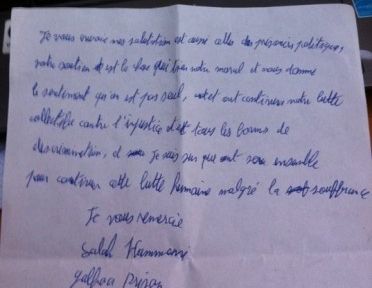 Je vous envoie mes salutation et aussi celle des prisonnies politiques,
votre soutien est la base qui tien notre moral et nous donne
le sentiment qu'on est pas seul, et ont continuera notre lutte
collective contre l'injustice et tous les forms de
descrimination, et je suis sur que ont sera ensemble
pour continuer cette lutte humaine malgré la souffrance
Je vous remercie
Salah Hammouri
Prison